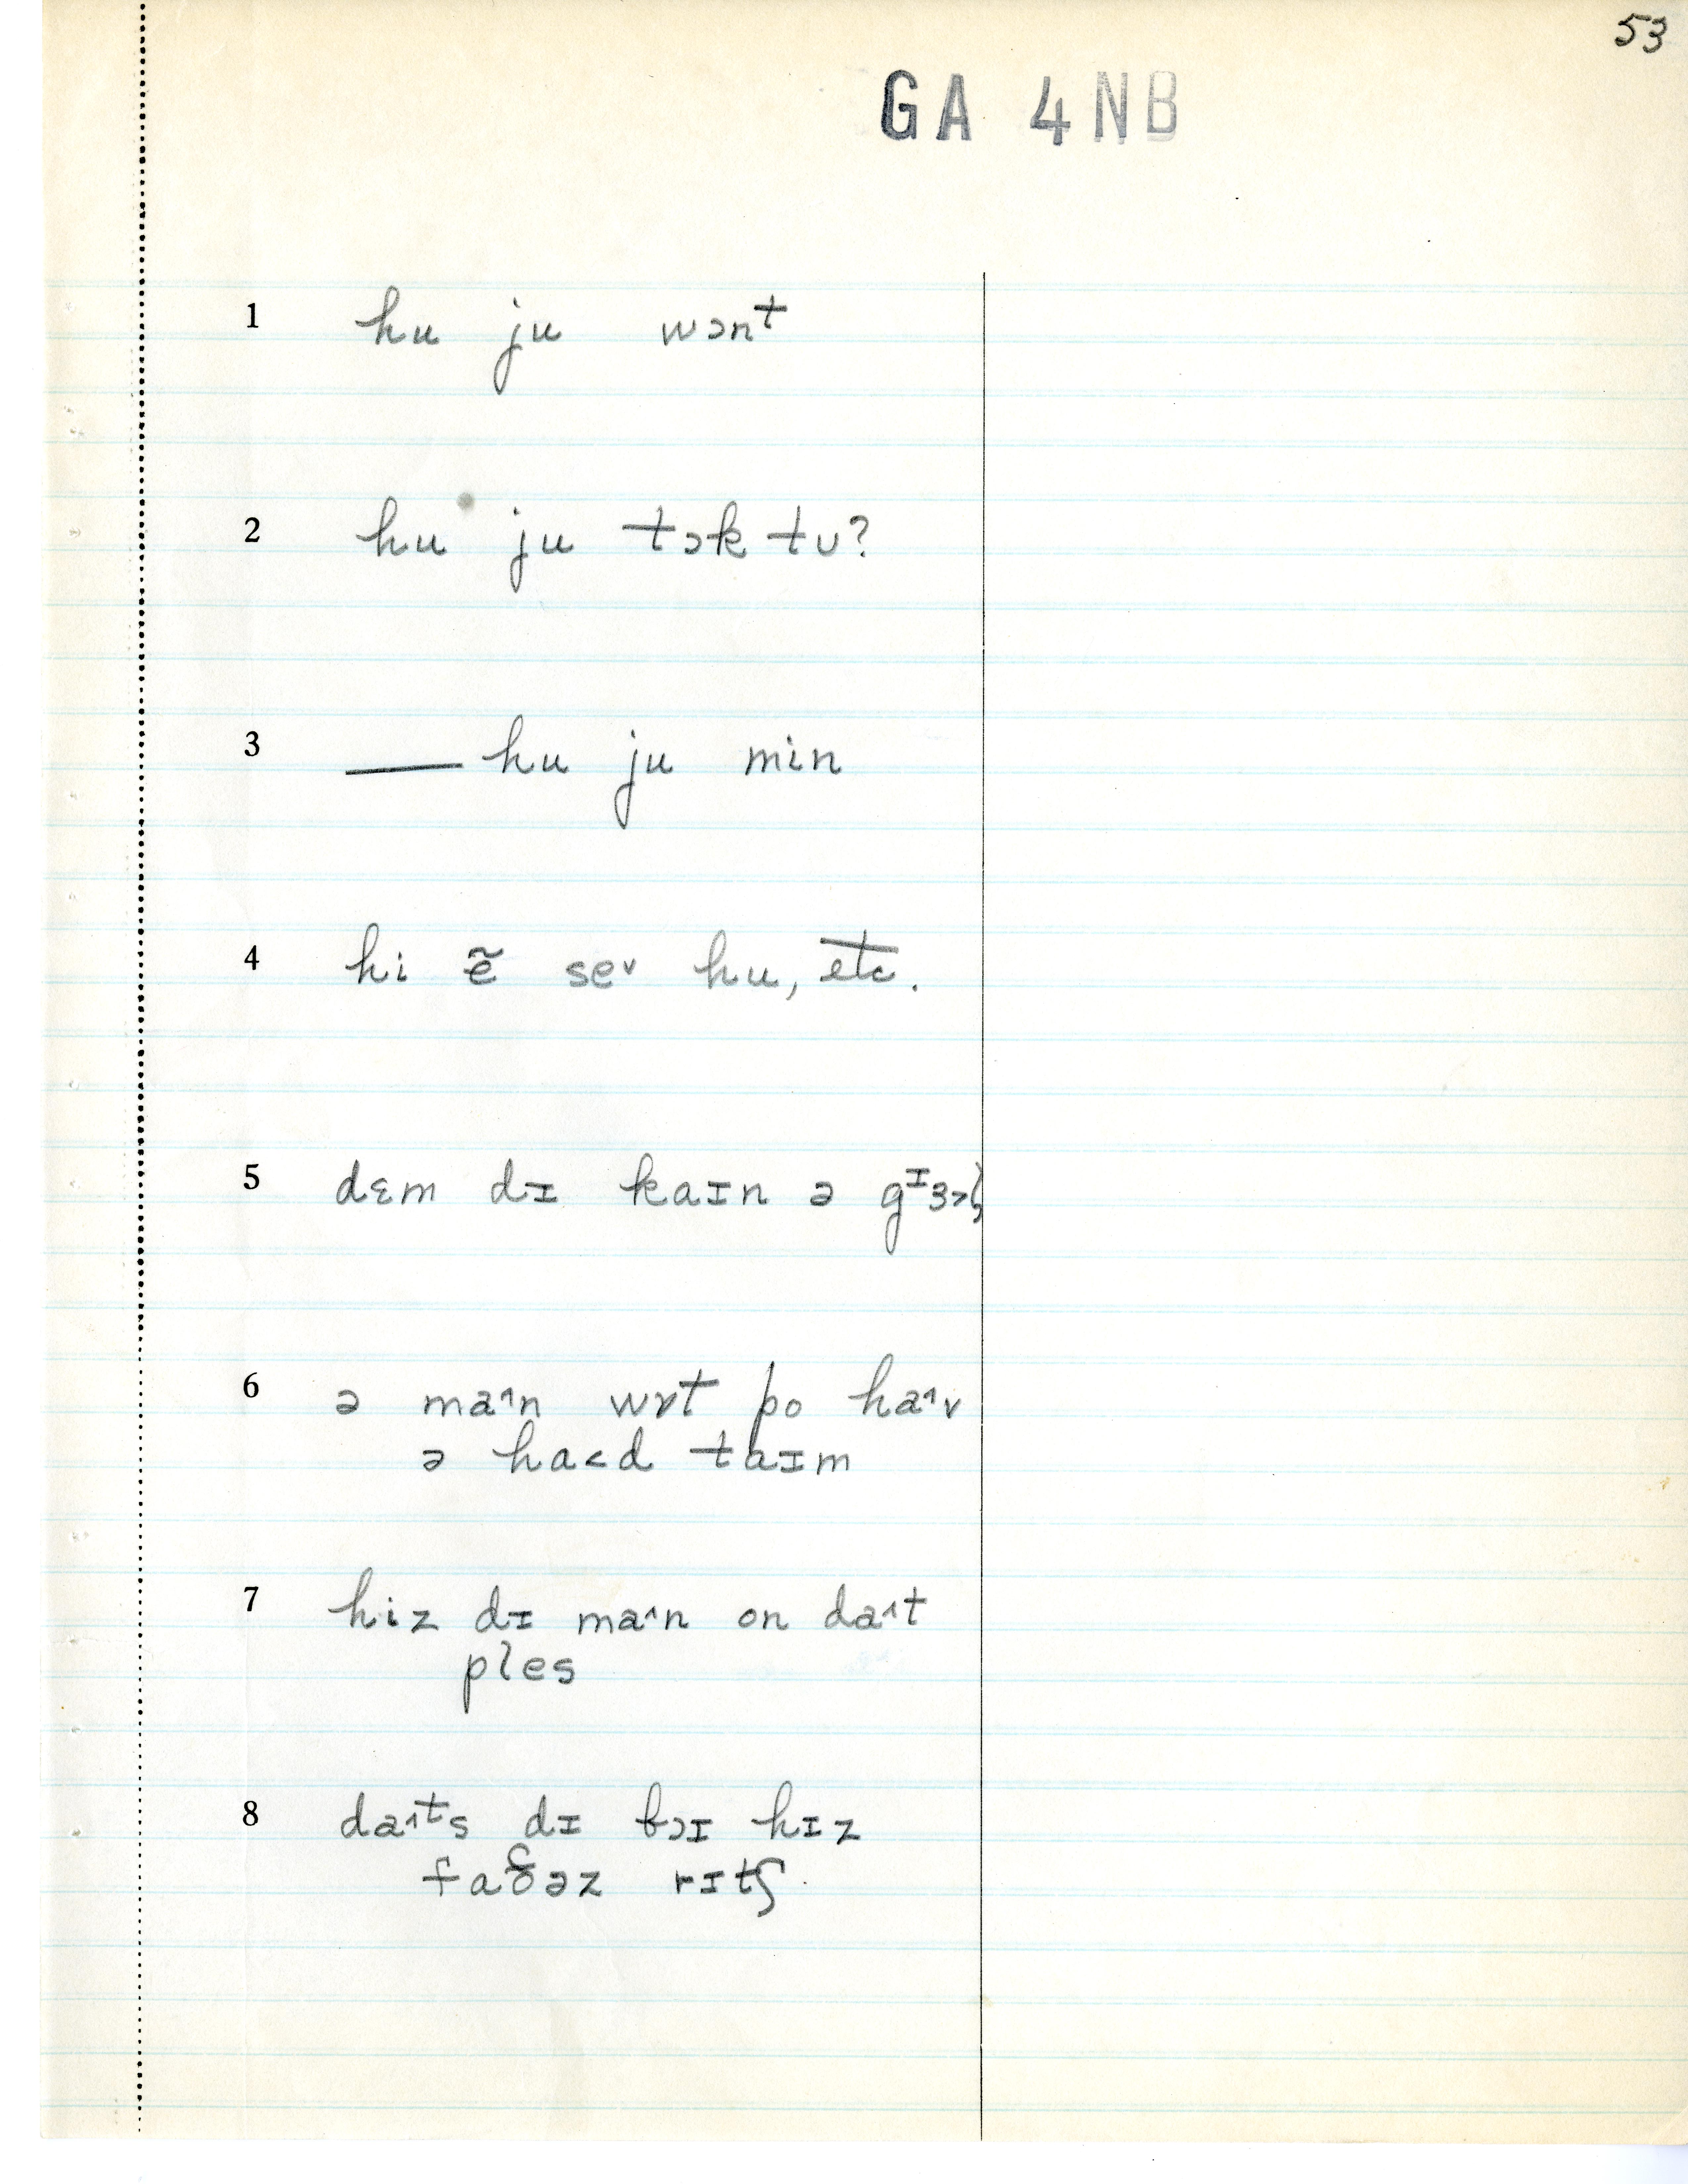 53
GA 4NB
1 hu ju wɔnᵗ
2 hu ju tɔk tʊ?
3 — hu ju min
4 hi ẽ se˅ hu, etc.
5 dɛm dɪ kaɪn ə
6 ə ma˄n wɤt po ha˄v
ə ha˂d taɪm
7 hiz dɪ ma˄n on da˄t
ples
8 da˄ᵗs dɪ bɔɪ hɪz
rɪtʃ